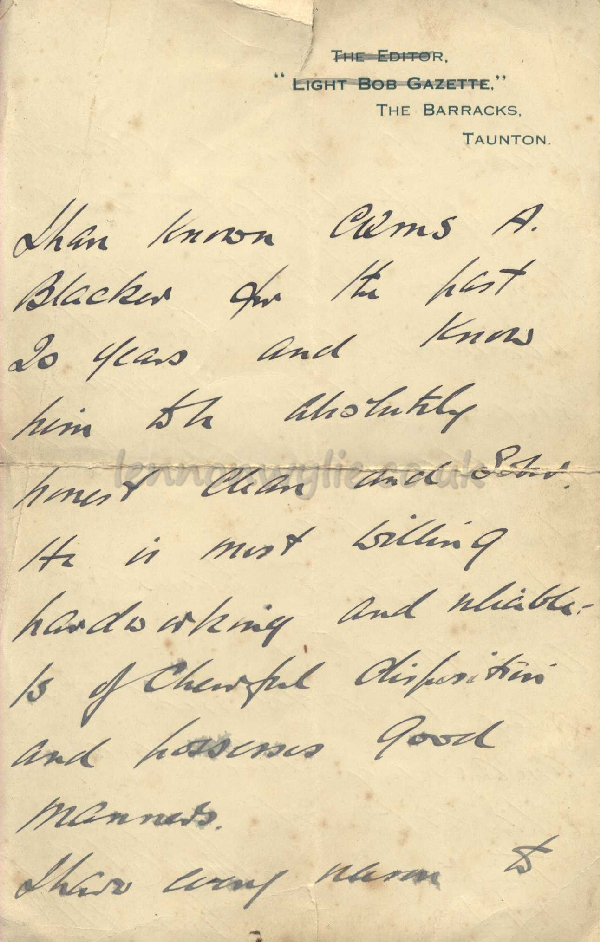 THE EDITOR,
"LIGHT BOB GAZETTE,"
THE BARRACKS,
TAUNTON.
I have known CQMS A.
Blacker for the past
20 years and know
him to be absolutely
honest clean and sober.
lennonwylie.co.uk
He is most willing
hardworking and reliable.
Is of cheerful disposition
and possesses good
manners.
I have every reason to